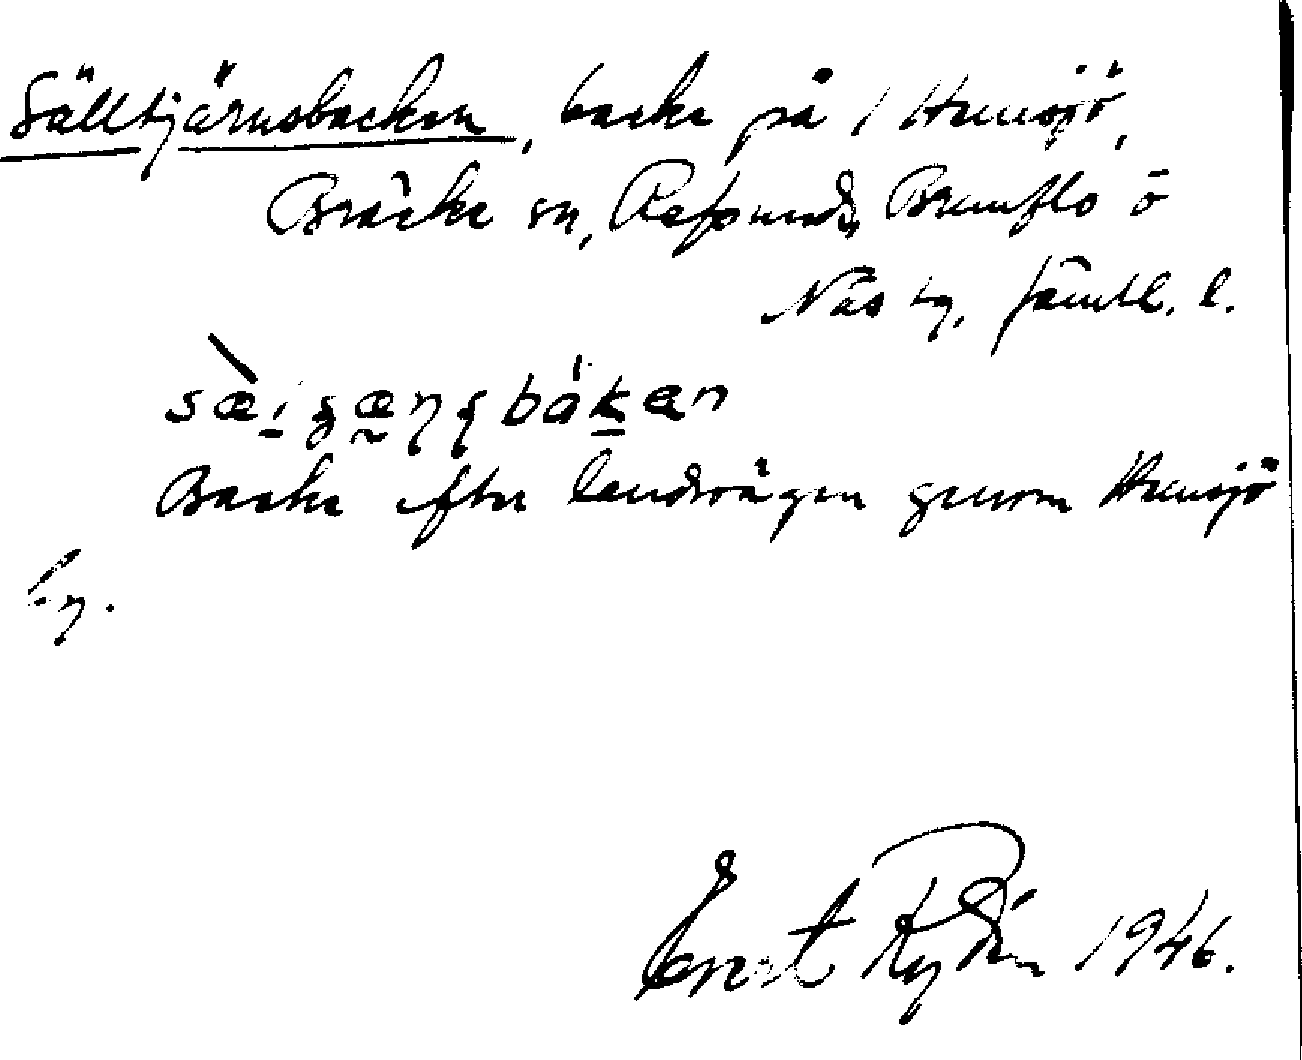 Sälltjärnsbacken, backe på 1 Hunsjö,
Bräcke sn, Refsunds, Brunflo o
Näs tg, Jämtl. l.
Backe efter landsvägen genom Hunsjö
by.
Evert Rydén 1946.